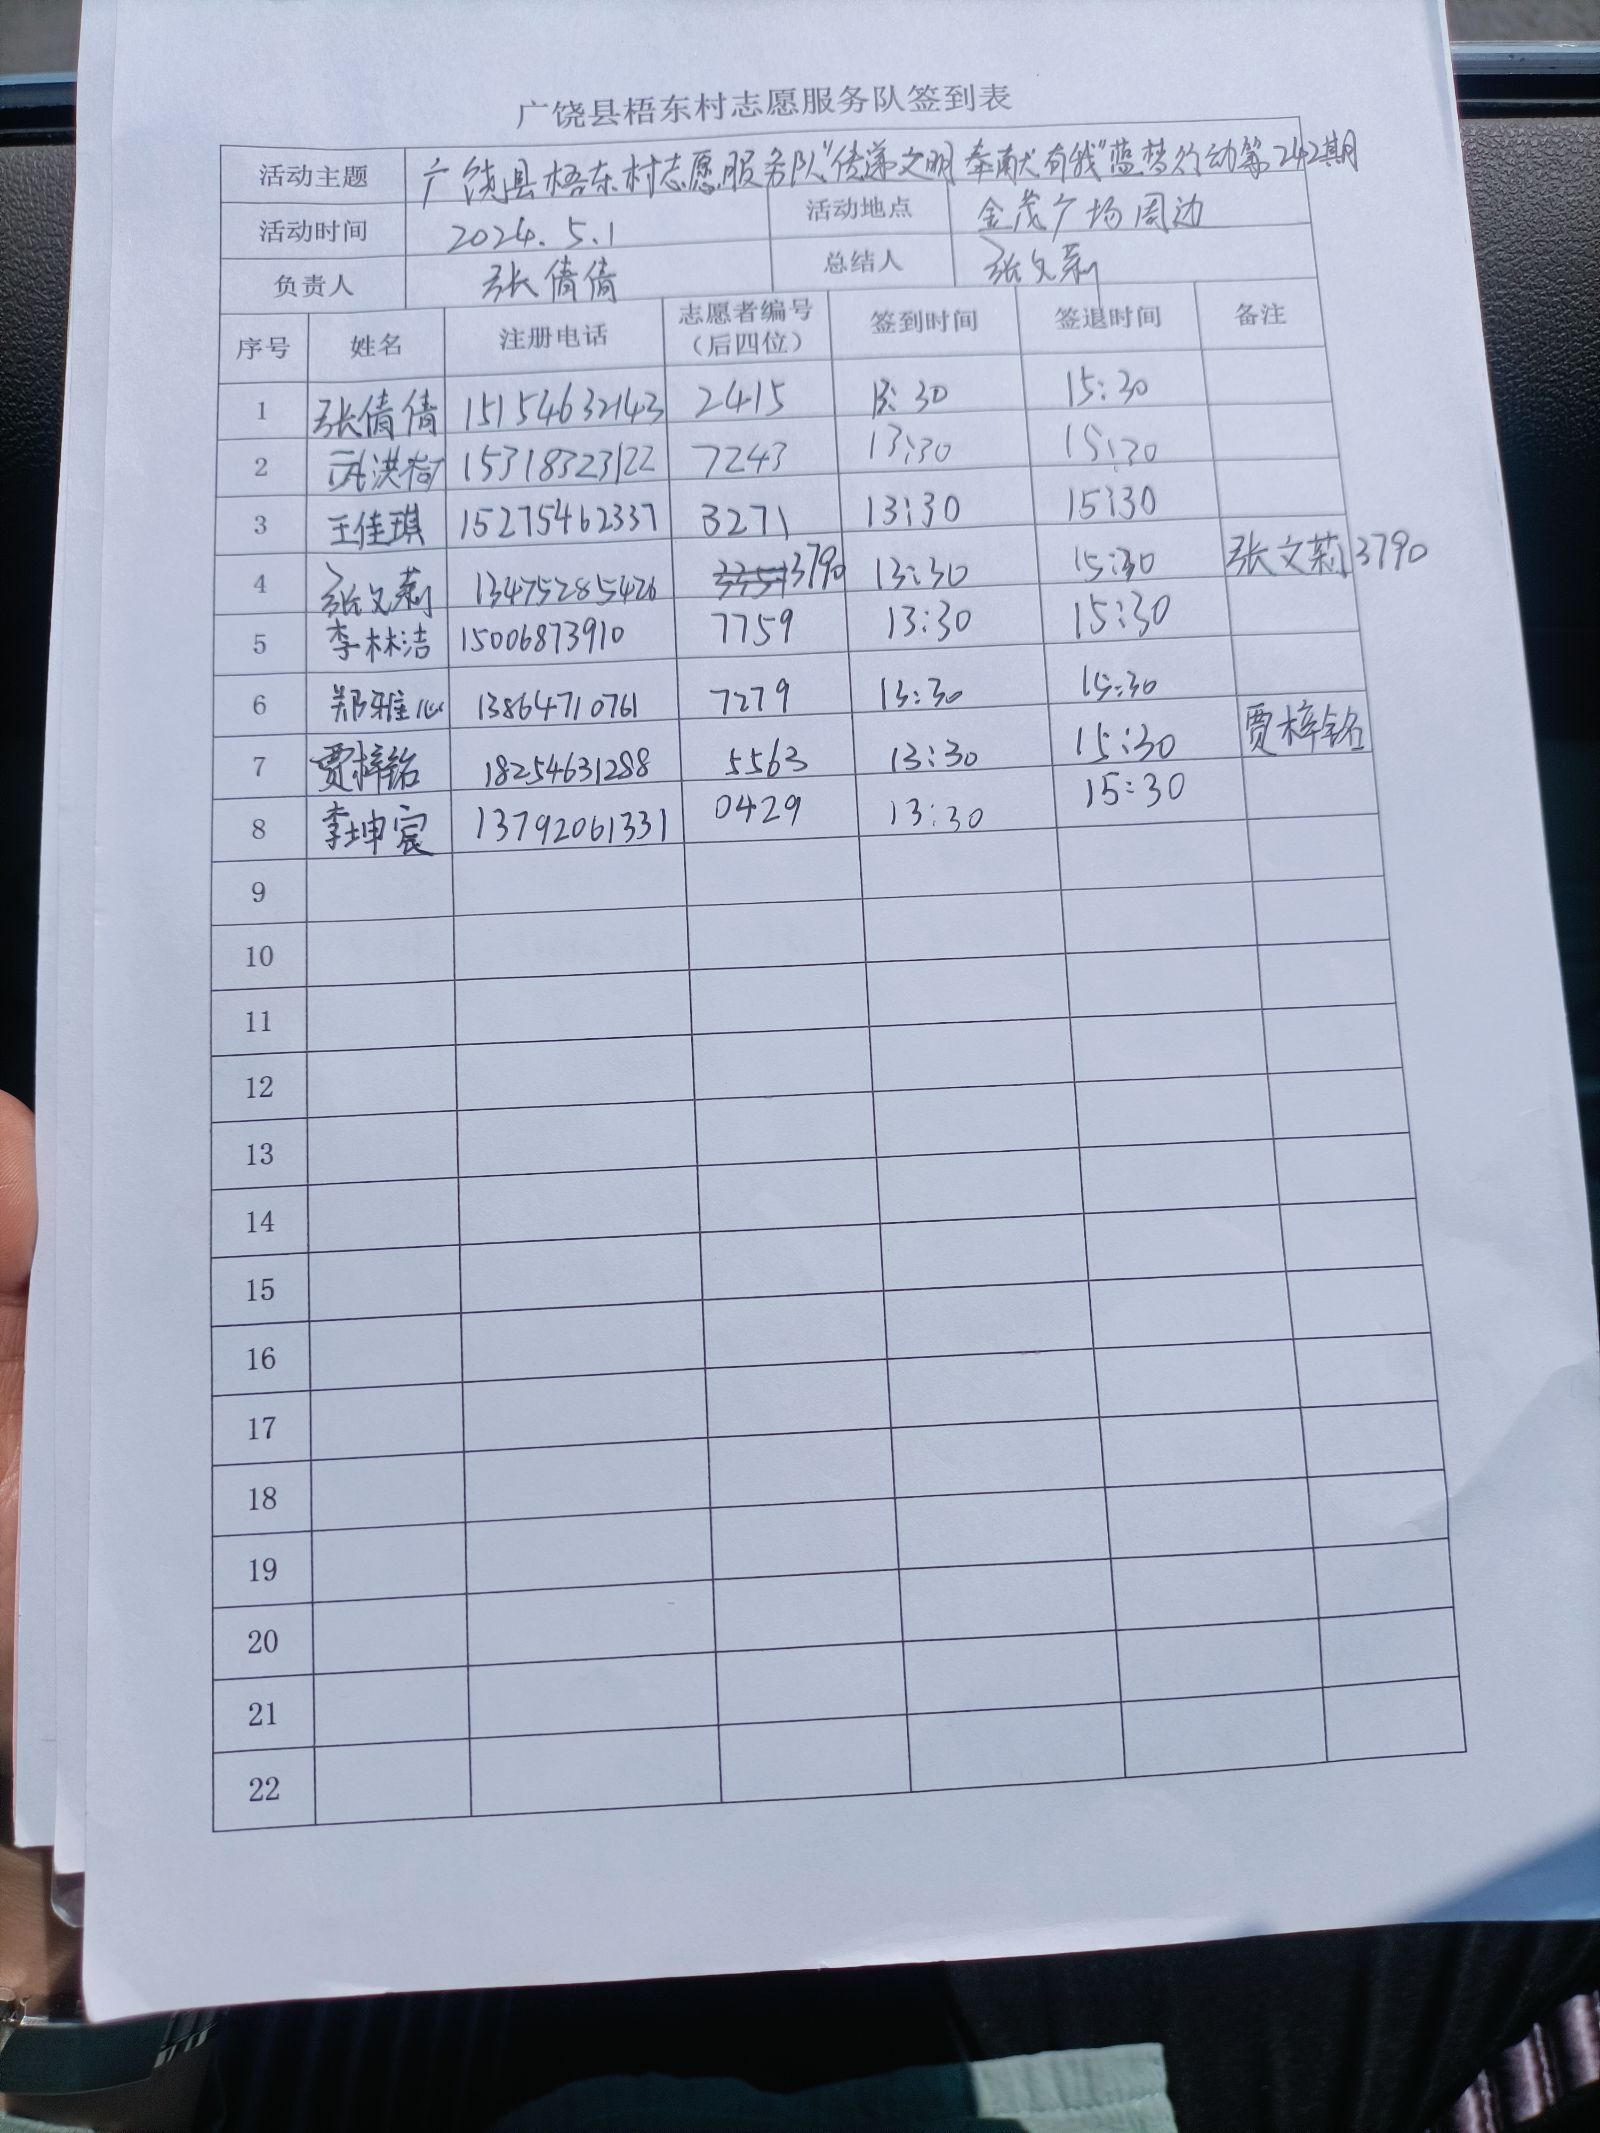 广饶县梧东村志愿服务队签到表
活动主题 广饶县梧东村志愿服务队“传递文明 奉献有我”蓝梦行动第242期
活动时间 2024.5.1 活动地点 金茂广场周边
负责人 张倩倩 总结人 张文莉
序号 姓名 注册电话 志愿者编号（后四位） 签到时间 签退时间 备注
1 张倩倩 15154632143 2415 13:30 15:30
2 武洪 15318323122 7243 13:30 15:30
3 王佳琪 15275462337 3271 13:30 15:30
4 张文莉 13475285426 3790 13:30 15:30 张文莉3790
5 李林洁 15006873910 7759 13:30 15:30
6 郑雅心 13864710761 7279 13:30 15:30
7 贾梓铭 18254631288 5563 13:30 15:30 贾梓铭
8 李坤宸 13792061331 0429 13:30 15:30
9
10
11
12
13
14
15
16
17
18
19
20
21
22